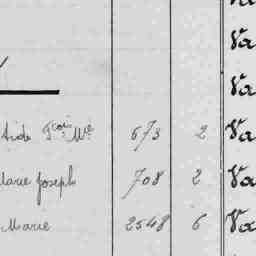 Va
Va
Aide Fçois Mie 673 2 Va
Marie Joseph 708 2 Va
Marie 2548 6 Va